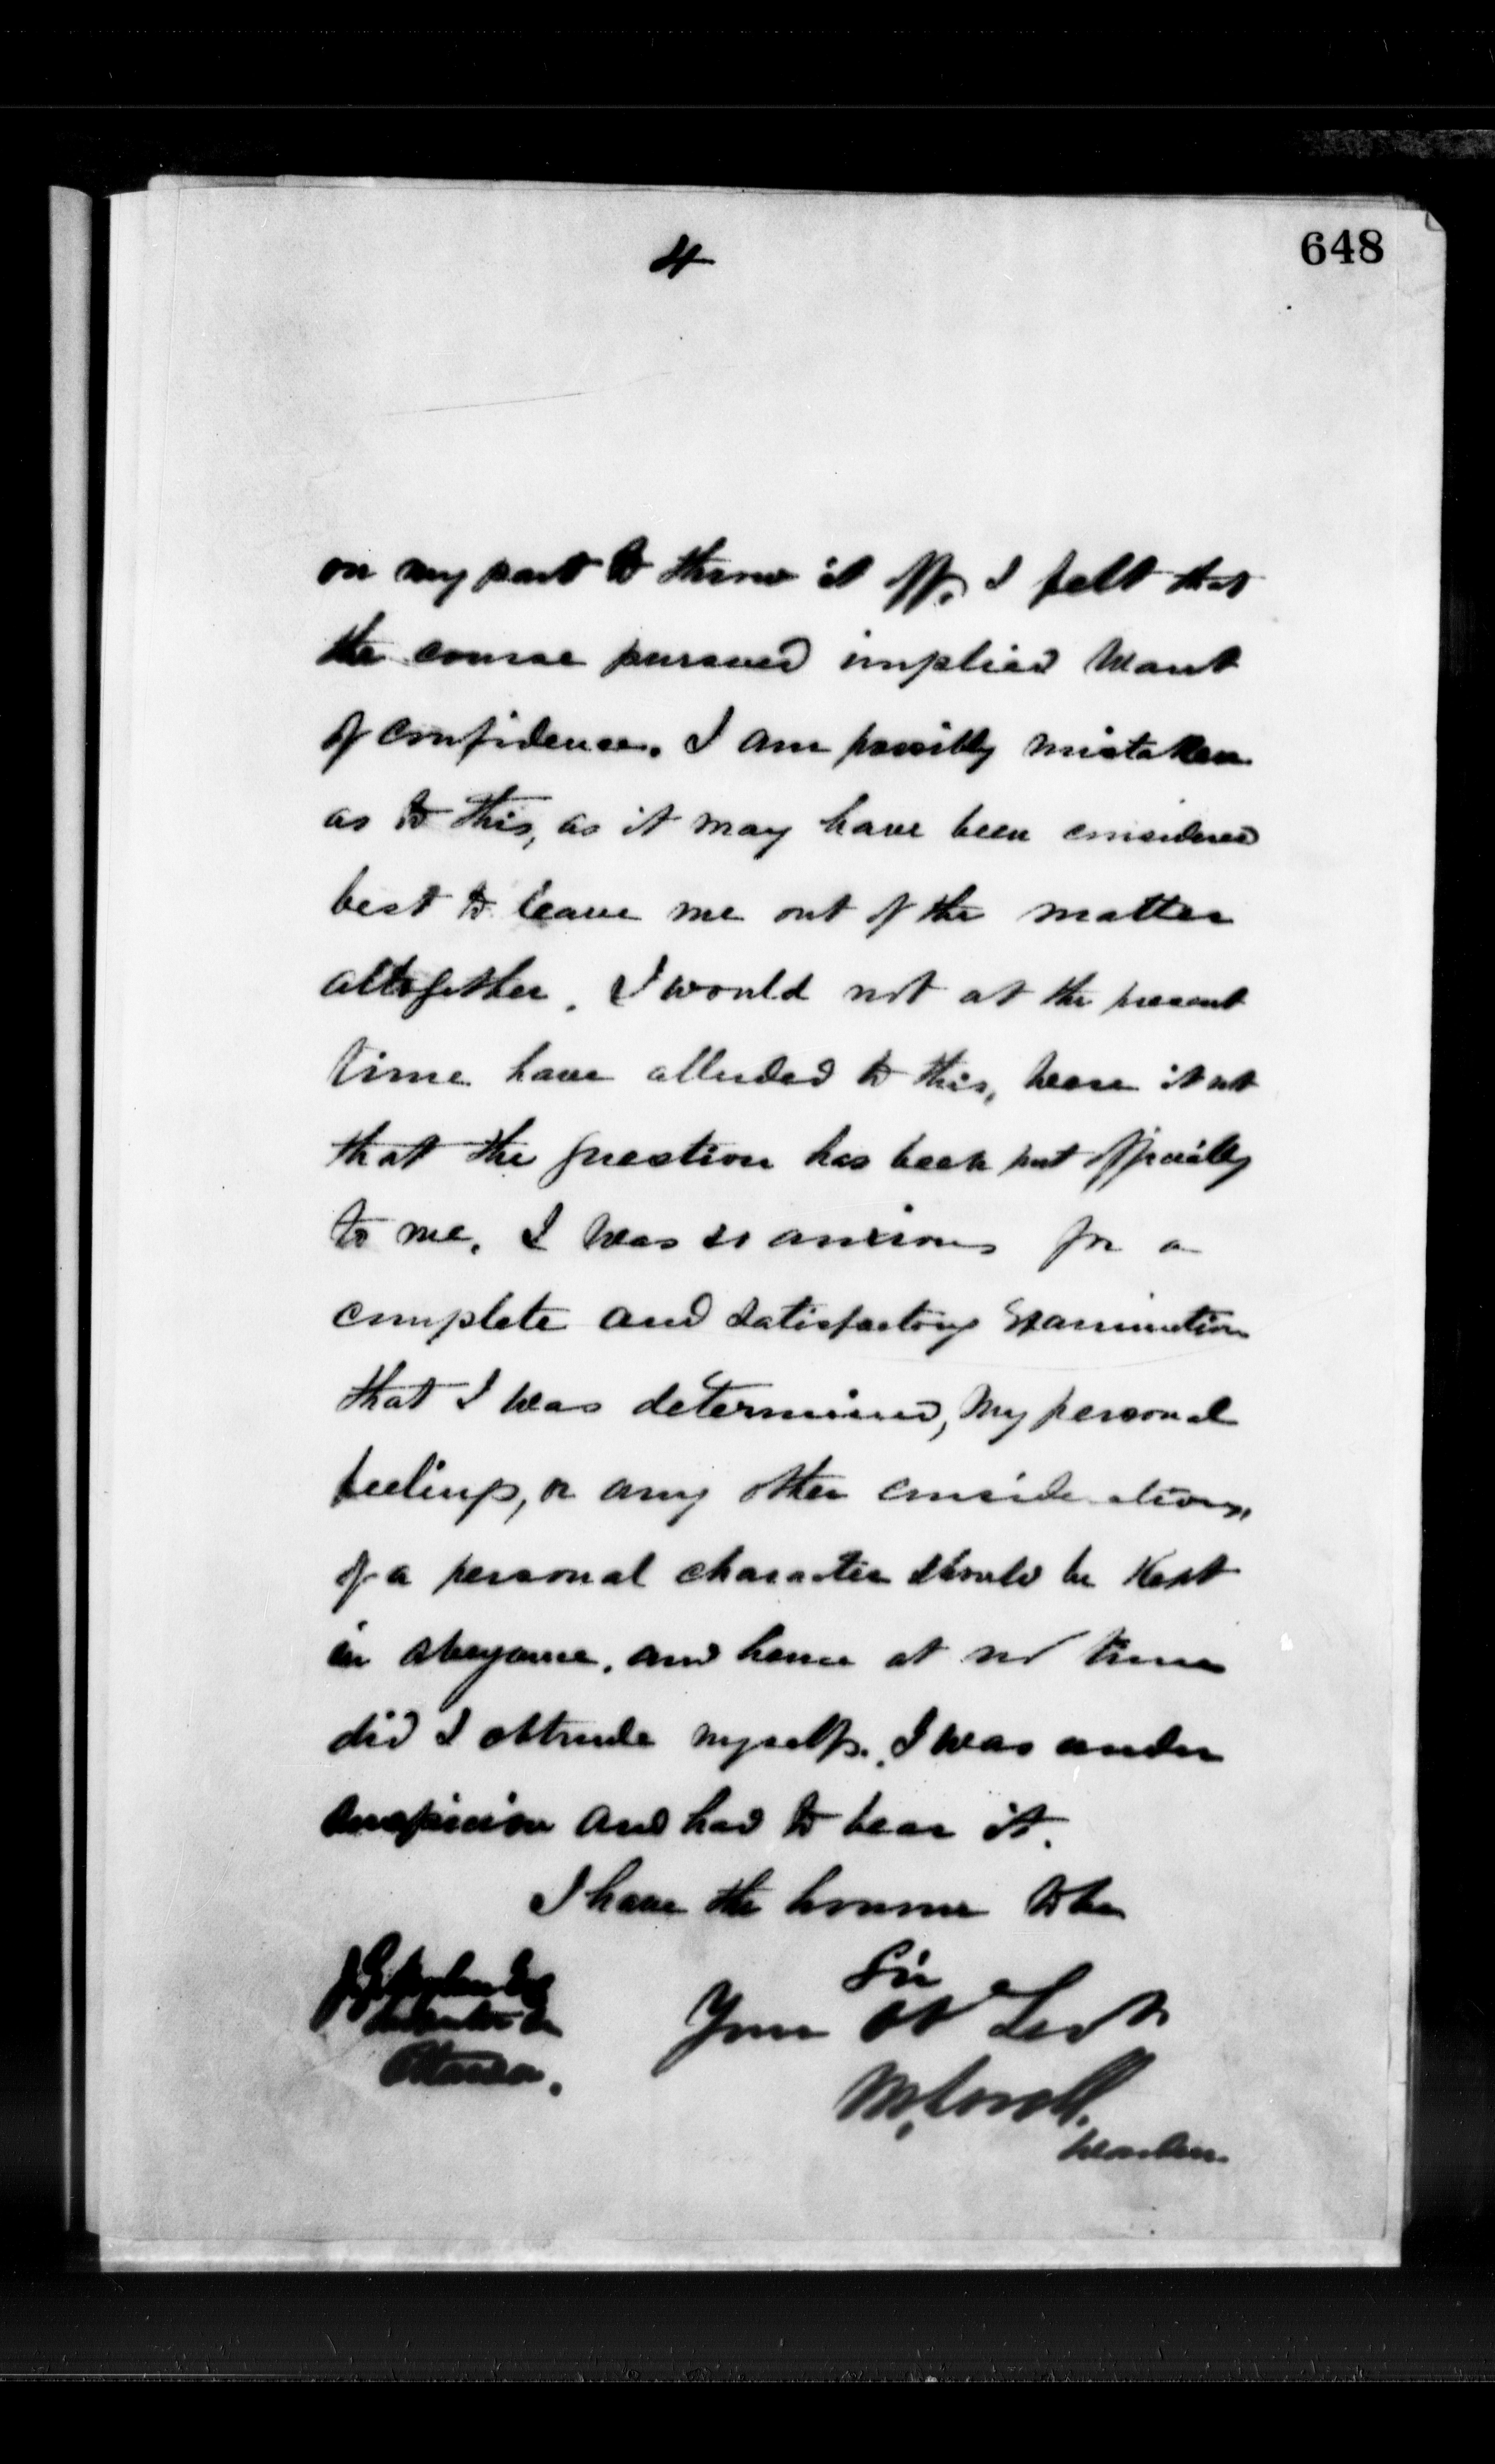 4
648
on my part to throw it off. I felt that
the course pursued implied want
of confidence. I am possibly mistaken
as to this, as it may have been considered
best to leave me out of the matter
altogether. I would not at the present
time have alluded to this, were it not
that the question has been put officially
to me. I was so anxious for a
complete and satisfactory Examination
that I was determined, my personal
feelings, or any other considerations,
of a personal character should be kept
in abeyance, and hence at no time
did I obtrude myself. I was under
suspicion and had to bear it.
I have the honour to be
Sir
Your Ob Servt
Ottawa.
Warden.